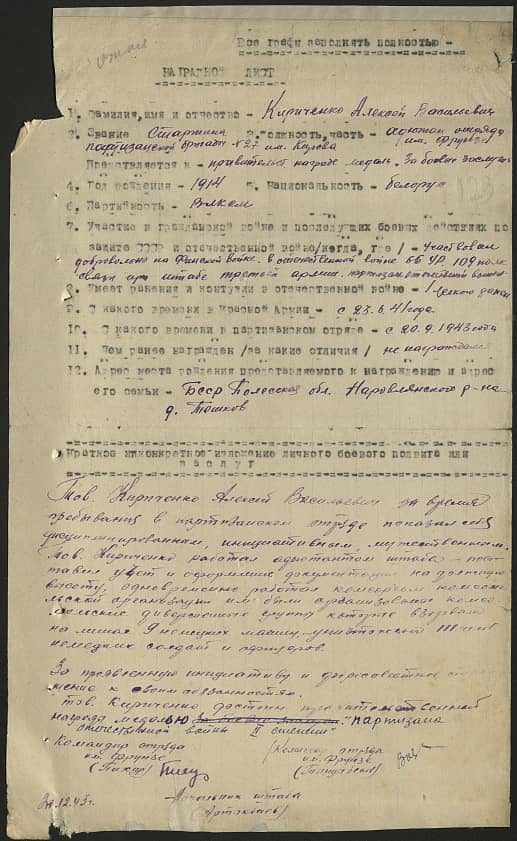 Все графы заполнять полностью –
НАГРАДНОЙ ЛИСТ
1. Фамилия, имя и отчество – Кириченко Алексей Васильевич
2. Звание Старшина 3. Должность, часть – адютант отряда
партизанской бригады №27 им. Кирова им. Фрунзе
Представляется к – правительст. награде медаль „За боевые заслуги
4. Год рождения – 1914 5. Национальность – белорус
6. Партийность – Влксм
7. Участие в гражданской войне и последующих боевых действиях по
защите СССР и отечественной войне /когда, где/ – Участвовал
добровольно на финской войне. в отечественной войне 65 УР 109 полк
связи при штабе третьей армии.
8. Имеет ранения и контузии в отечественной войне –
9. С какого времени в Красной Армии – с 23.6.41 года.
10. С какого времени в партизанском отряде – с 20.9.1943 года
11. Чем ранее награжден /за какие отличия/ не награждался
12. Адрес места рождения представляемого к награждению и адрес
его семьи – БССР Полесская обл. Наровлянского р-на
д. Тешков
Краткое и конкретное изложение личного боевого подвига или
заслуг
Тов. Кириченко Алексей Васильевич за время
пребывания в партизанском отряде показал себя
дисциплинированным, инициативным, мужественным.
Тов. Кириченко работал адютантом штаба – пос-
тавил учет и оформление документации на должную
высоту, одновременно работал комсоргом комсомо-
льской организации им были организованы комсо-
мольские диверсионные группы которые взорвали
на минах 9 немецких машин, уничтожено
немецких солдат и офицеров.
За проявленную инициативу и добросовестное отно-
шение к своим обязанностям.
тов. Кириченко достоин правительственной
награды медалью За боевые заслуги "Партизана
отечественной войны II степени"
Командир отряда Комиссар отряда
им. Фрунзе им. Фрунзе
Начальник штаба
12.43г.